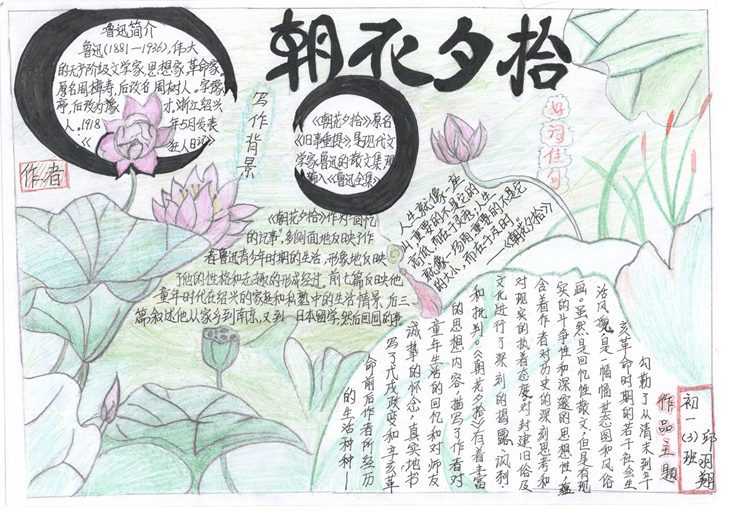 朝花夕拾
鲁迅简介
鲁迅(1881—1936),伟大
的无产阶级文学家、思想家、革命家。
原名周樟寿,后改名周树人。字豫
亭,后改字豫 才,浙江绍兴
人。1918 年5月发表
《 狂人日记》
作者
写作背景
《朝花夕拾》原名
《旧事重提》是现代文
学家鲁迅的散文集 现
编入《鲁迅全集》
《朝花夕拾》作为"回忆
的记事",多侧面地反映了作
者鲁迅青少年时期的生活,形象地反映
了他的性格和志趣的形成经过。前七篇反映他
童年时代在绍兴的家庭和私塾中的生活情景,后三
篇叙述他从家乡到南京,又到日本留学,然后回国的事
好词佳句
人生就像一座
山,重要的不是它的
高低,而在于灵秀,人生
就像一场雨,重要的不是它
的大小,而在于及时。
——《朝花夕拾》
作品主题
勾勒了从清末到辛
亥革命时期的若干社会生
活风貌,是一幅幅世态图和风俗
画。虽然是回忆性散文,但是有现
实的斗争性和深邃的思想性,蕴
含着作者对历史的深刻思考和
对现实的执着态度,对封建旧俗及
文化进行了深刻的揭露、讽刺、
和批判。《朝花夕拾》有着丰富
的思想内容,描写了作者对
童年生活的回忆和对师友
诚挚的怀念,真实地书
写了戊戌政变和辛亥革
命前后作者所经历
的生活种种—
初一(3)班
邱羽翔